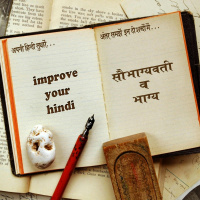 अपनी हिन्दी सुधारें...
improve
your
hindi
अंतर समझें इन दो शब्दों में...
सौभाग्यवती
व
भाग्य